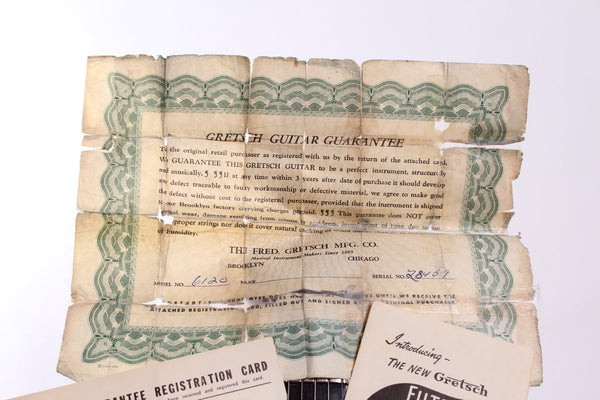 GRETSCH GUITAR GUARANTEE
To the original retail purchaser as registered with us by the return of the attached card,
We GUARANTEE THIS GRETSCH GUITAR to be a perfect instrument, structurally
and musically. § §§ If at any time within 3 years after date of purchase it should develop
any defect traceable to faulty workmanship or defective material, we agree to make good
the defect without cost to the registered purchaser, provided that the instrument is shipped
to our Brooklyn factory carrying charges prepaid. §§§ This guarantee does NOT cover
wear, damage resulting from
improper strings nor does it cover natural
or humidity.
THE FRED. GRETSCH MFG. CO.
Musical Instrument Makers Since 1883
BROOKLYN CHICAGO
MODEL NO. 6120 SERIAL NO.
UNTIL WE RECEIVE THE
ATTACHED FILLED OUT AND SIGNED ORIGINAL PURCHASER.
GUARANTEE REGISTRATION CARD
have received and registered this card.
Introducing-
THE NEW Gretsch